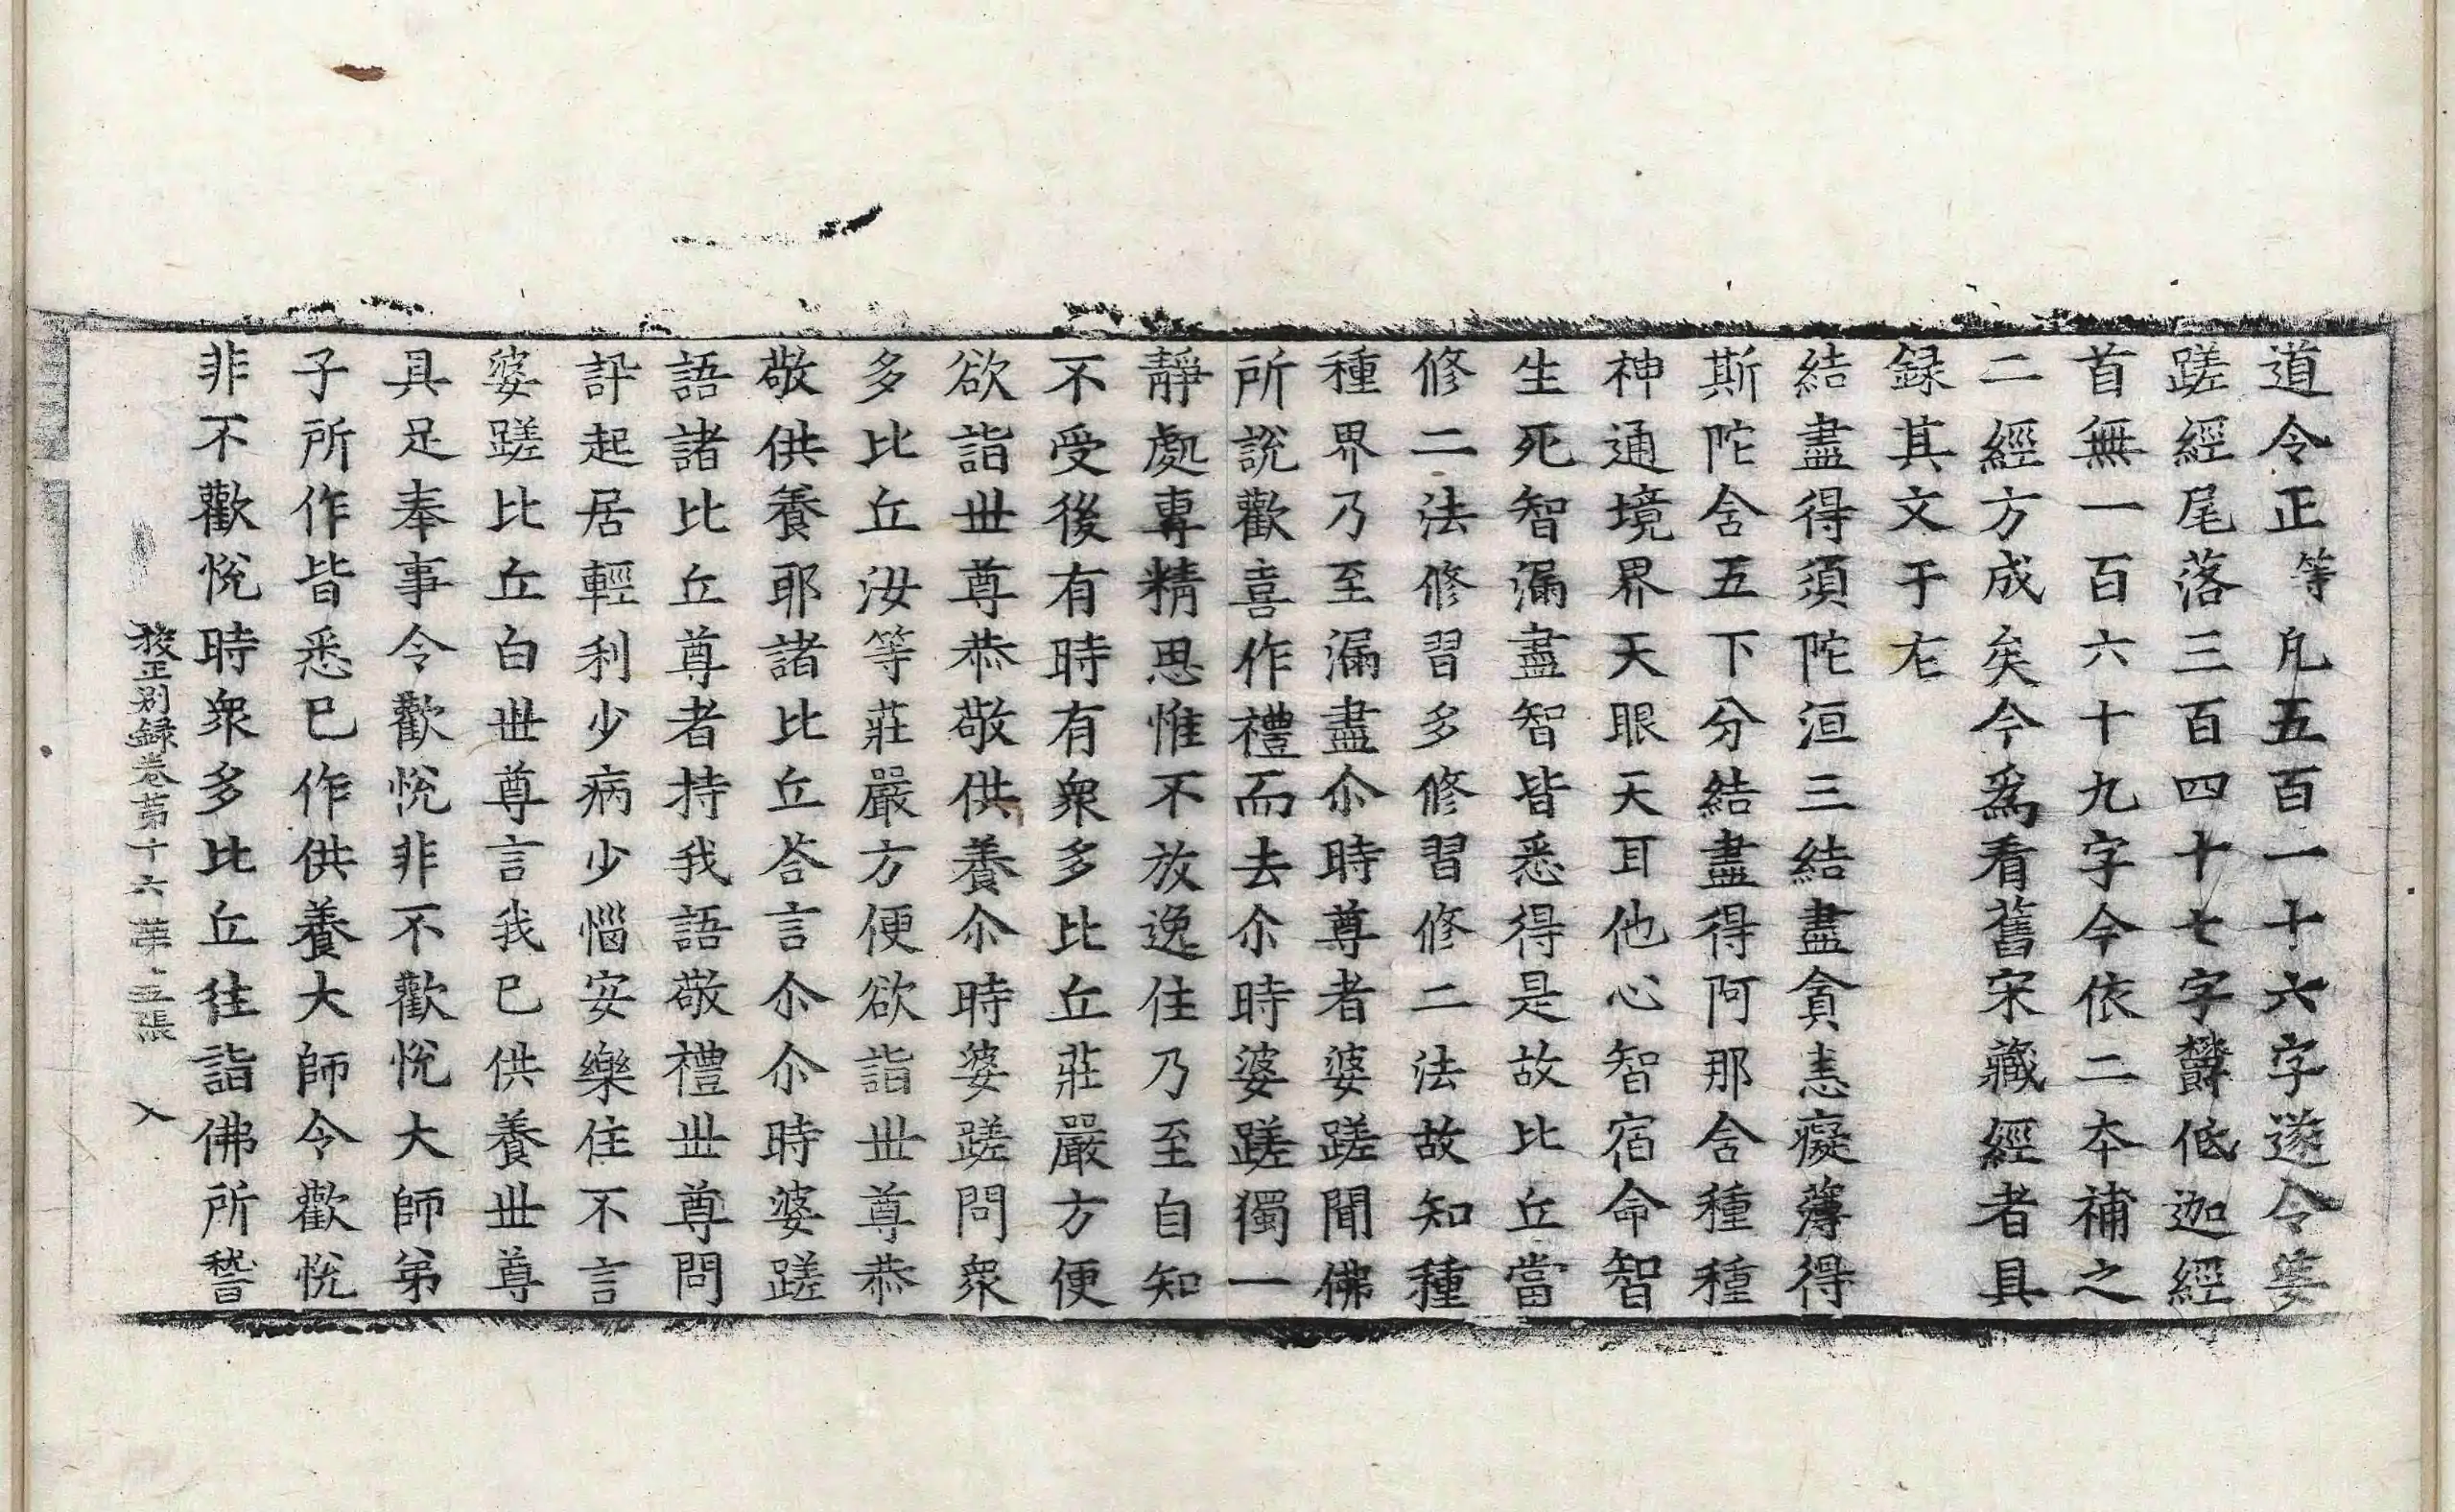 道令正等凡五百一十六字遂令婆
蹉經尾落三百四十七字欝低迦經
首無一百六十九字今依二本補之
二經方成矣今為看舊宋藏經者具
録其文于左
結盡得須陀洹三結盡貪恚癡薄得
斯陀含五下分結盡得阿那含種種
神通境界天眼天耳他心智宿命智
生死智漏盡智皆悉得是故比丘當
修二法修習多修習修二法故知種
種界乃至漏盡尒時尊者婆蹉聞佛
所說歡喜作禮而去尒時婆蹉獨一
靜處專精思惟不放逸住乃至自知
不受後有時有衆多比丘莊嚴方便
欲詣世尊恭敬供養尒時婆蹉問衆
多比丘汝等莊嚴方便欲詣世尊恭
敬供養耶諸比丘荅言尒尒時婆蹉
語諸比丘尊者持我語敬禮世尊問
訊起居輕利少病少惱安樂住不言
婆蹉比丘白世尊言我已供養世尊
具足奉事令歡悅非不歡悅大師弟
子所作皆悉已作供養大師令歡悅
非不歡悅時衆多比丘往詣佛所稽
挍正別録卷第十六 第五張 入